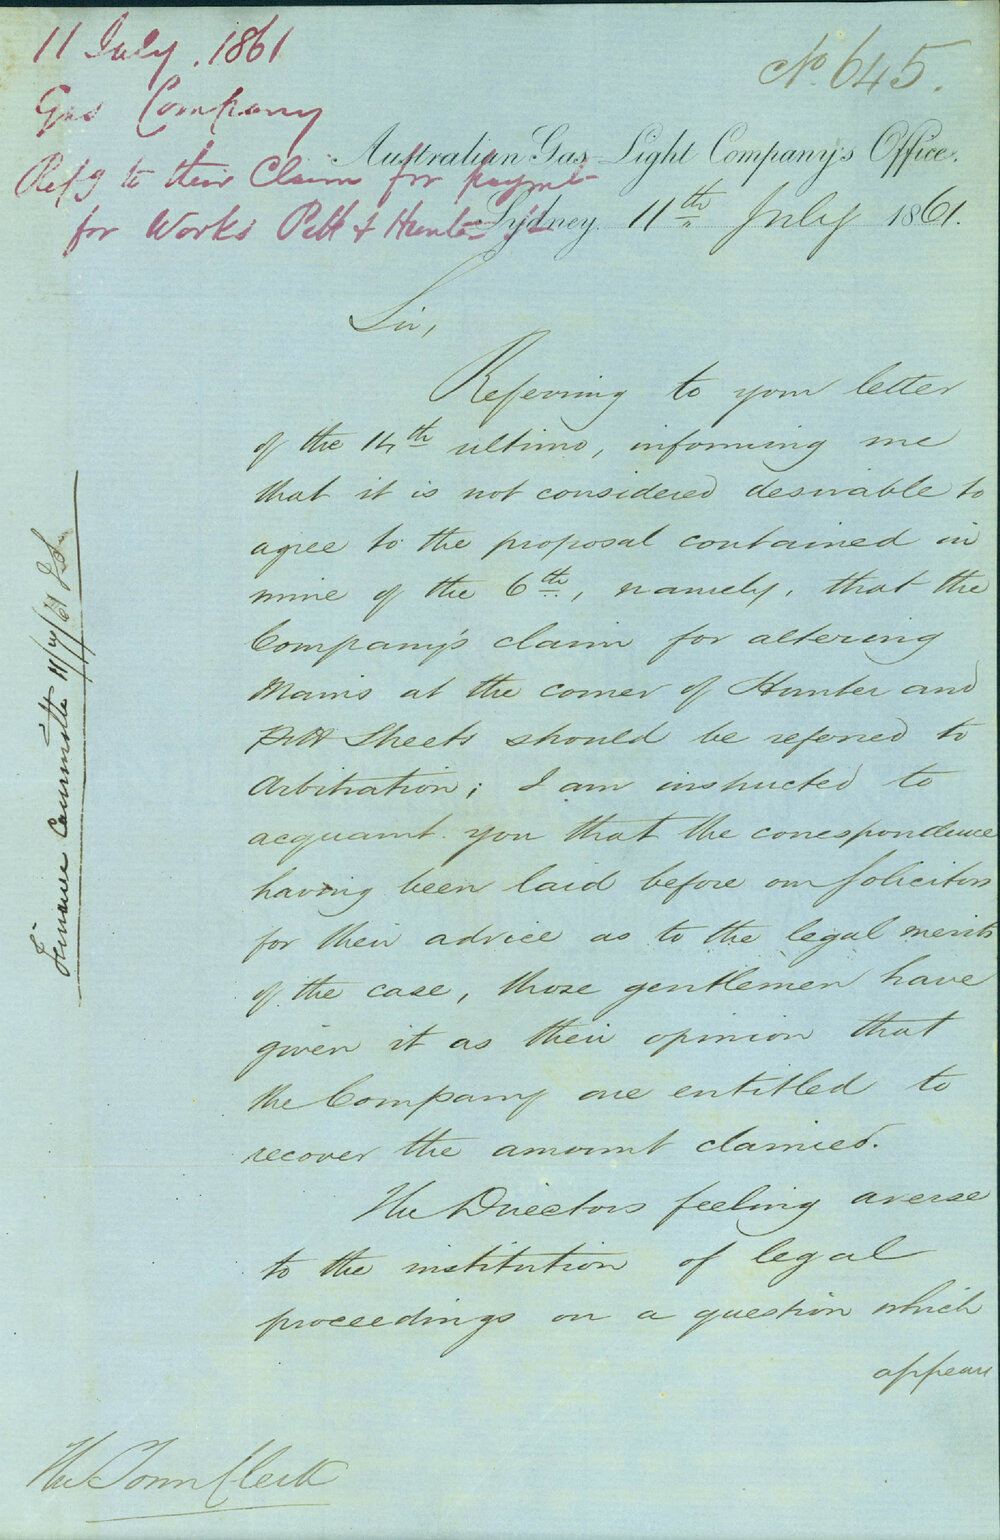 11 July. 1861
Gas Company
Refg to their Claim for paymt
for Works Pitt & Hunter St
No. 645.
Australian Gas Light Company's Office.
Sydney 11th July 1861.
Sir,
Referring to your letter
of the 14th ultimo, informing me
that it is not considered desirable to
agree to the proposal contained in
mine of the 6th, namely, that the
Company's claim for altering
Mains at the corner of Hunter and
Pitt Streets should be referred to
Arbitration; I am instructed to
acquaint you that the correspondence
having been laid before our Solicitors
for their advice as to the legal merits
of the case, those gentlemen have
given it as their opinion that
the Company are entitled to
recover the amount claimed.
The Directors feeling averse
to the institution of legal
proceedings on a question which
appears
The Town Clerk
Finance Committee 11/7/61